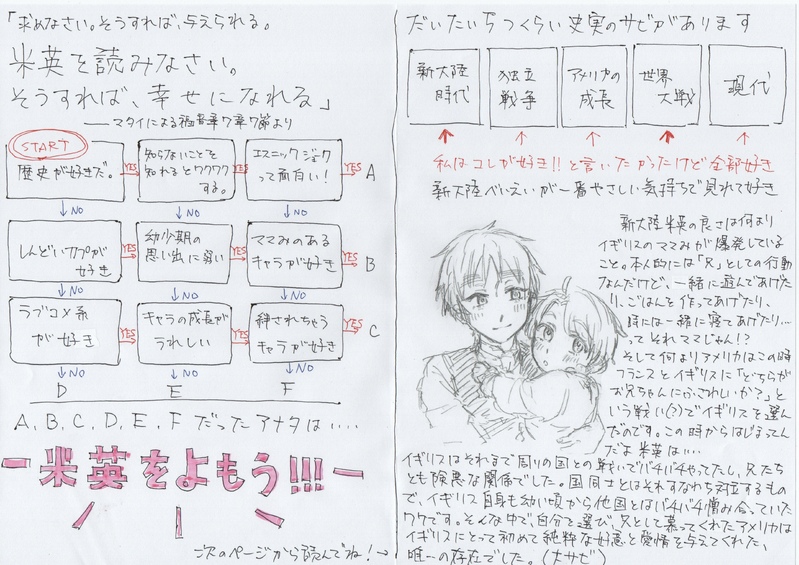 「求めなさい。そうすれば、与えられる。
米英を読みなさい。
そうすれば、幸せになれる」
──マタイによる福音書7章7節より
START
歴史が好きだ。
YES
知らないことを
知れるとワクワク
する。
YES
エスニックジョーク
って面白い!
YES
A
↓NO
↓NO
↓NO
しんどいカプが
好き
YES
幼少期の
思い出に弱い
YES
ママみのある
キャラが好き
YES
B
↓NO
↓NO
↓NO
ラブコメ系
が好き
YES
キャラの成長が
うれしい
YES
絆されちゃう
キャラが好き
YES
C
↓NO
↓NO
↓NO
D
E
F
A,B,C,D,E,Fだったアナタは…
米英をよもう!!!
次のページから読んでね!→
だいたい5つくらい史実のサビがあります
新大陸
時代
独立
戦争
アメリカの
成長
世界
大戦
現代
私はコレが好き!!と言いたかったけど全部好き
新大陸べいえいが一番やさしい気持ちで見れて好き
新大陸米英の良さは何より
イギリスのママみが爆発している
こと。本人的には「兄」としての行動
なんだけど、一緒に遊んであげた
り、ごはんを作ってあげたり、
時には一緒に寝てあげたり…
ってそれママじゃん!?
そして何よりアメリカはこの時
フランスとイギリスに「どちらが
お兄ちゃんにふさわしいか?」と
いう戦い(?)でイギリスを選ん
だのです。この時からはじまってん
だよ米英は…
イギリスはそれまで周りの国との戦いでバチバチやってたし、兄たち
とも険悪な関係でした。国同士とはそれすなわち対立するもの
で、イギリス自身も幼い頃から他国とはバチバチ憎み合っていた
ワケです。そんな中で、自分を選び、兄として慕ってくれたアメリカは
イギリスにとって初めて純粋な好意と愛情を与えてくれた、
唯一の存在でした。(大サビ)